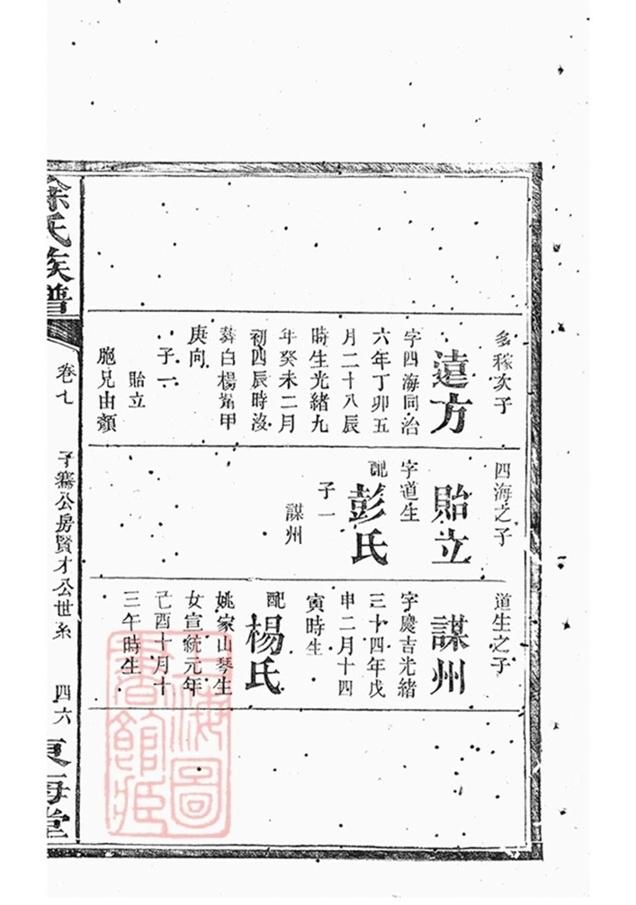 多稼次子
遠方
字四海同治
六年丁卯五
月二十八辰
時生光緒九
年癸未二月
初四辰時沒
葬白楊嵓甲
庚向
子一
貽立
胞兄由顏
四海之子
貽立
字道生
配
彭氏
子一
謀州
道生之子
謀州
字慶吉光緒
三十四年戊
申二月十四
寅時生
配
楊氏
姚家山琴生
女宣統元年
己酉十月十
三午時生
徐氏族譜
卷七
子騫公房賢才公世系
四六
東海堂
上海圖書館藏